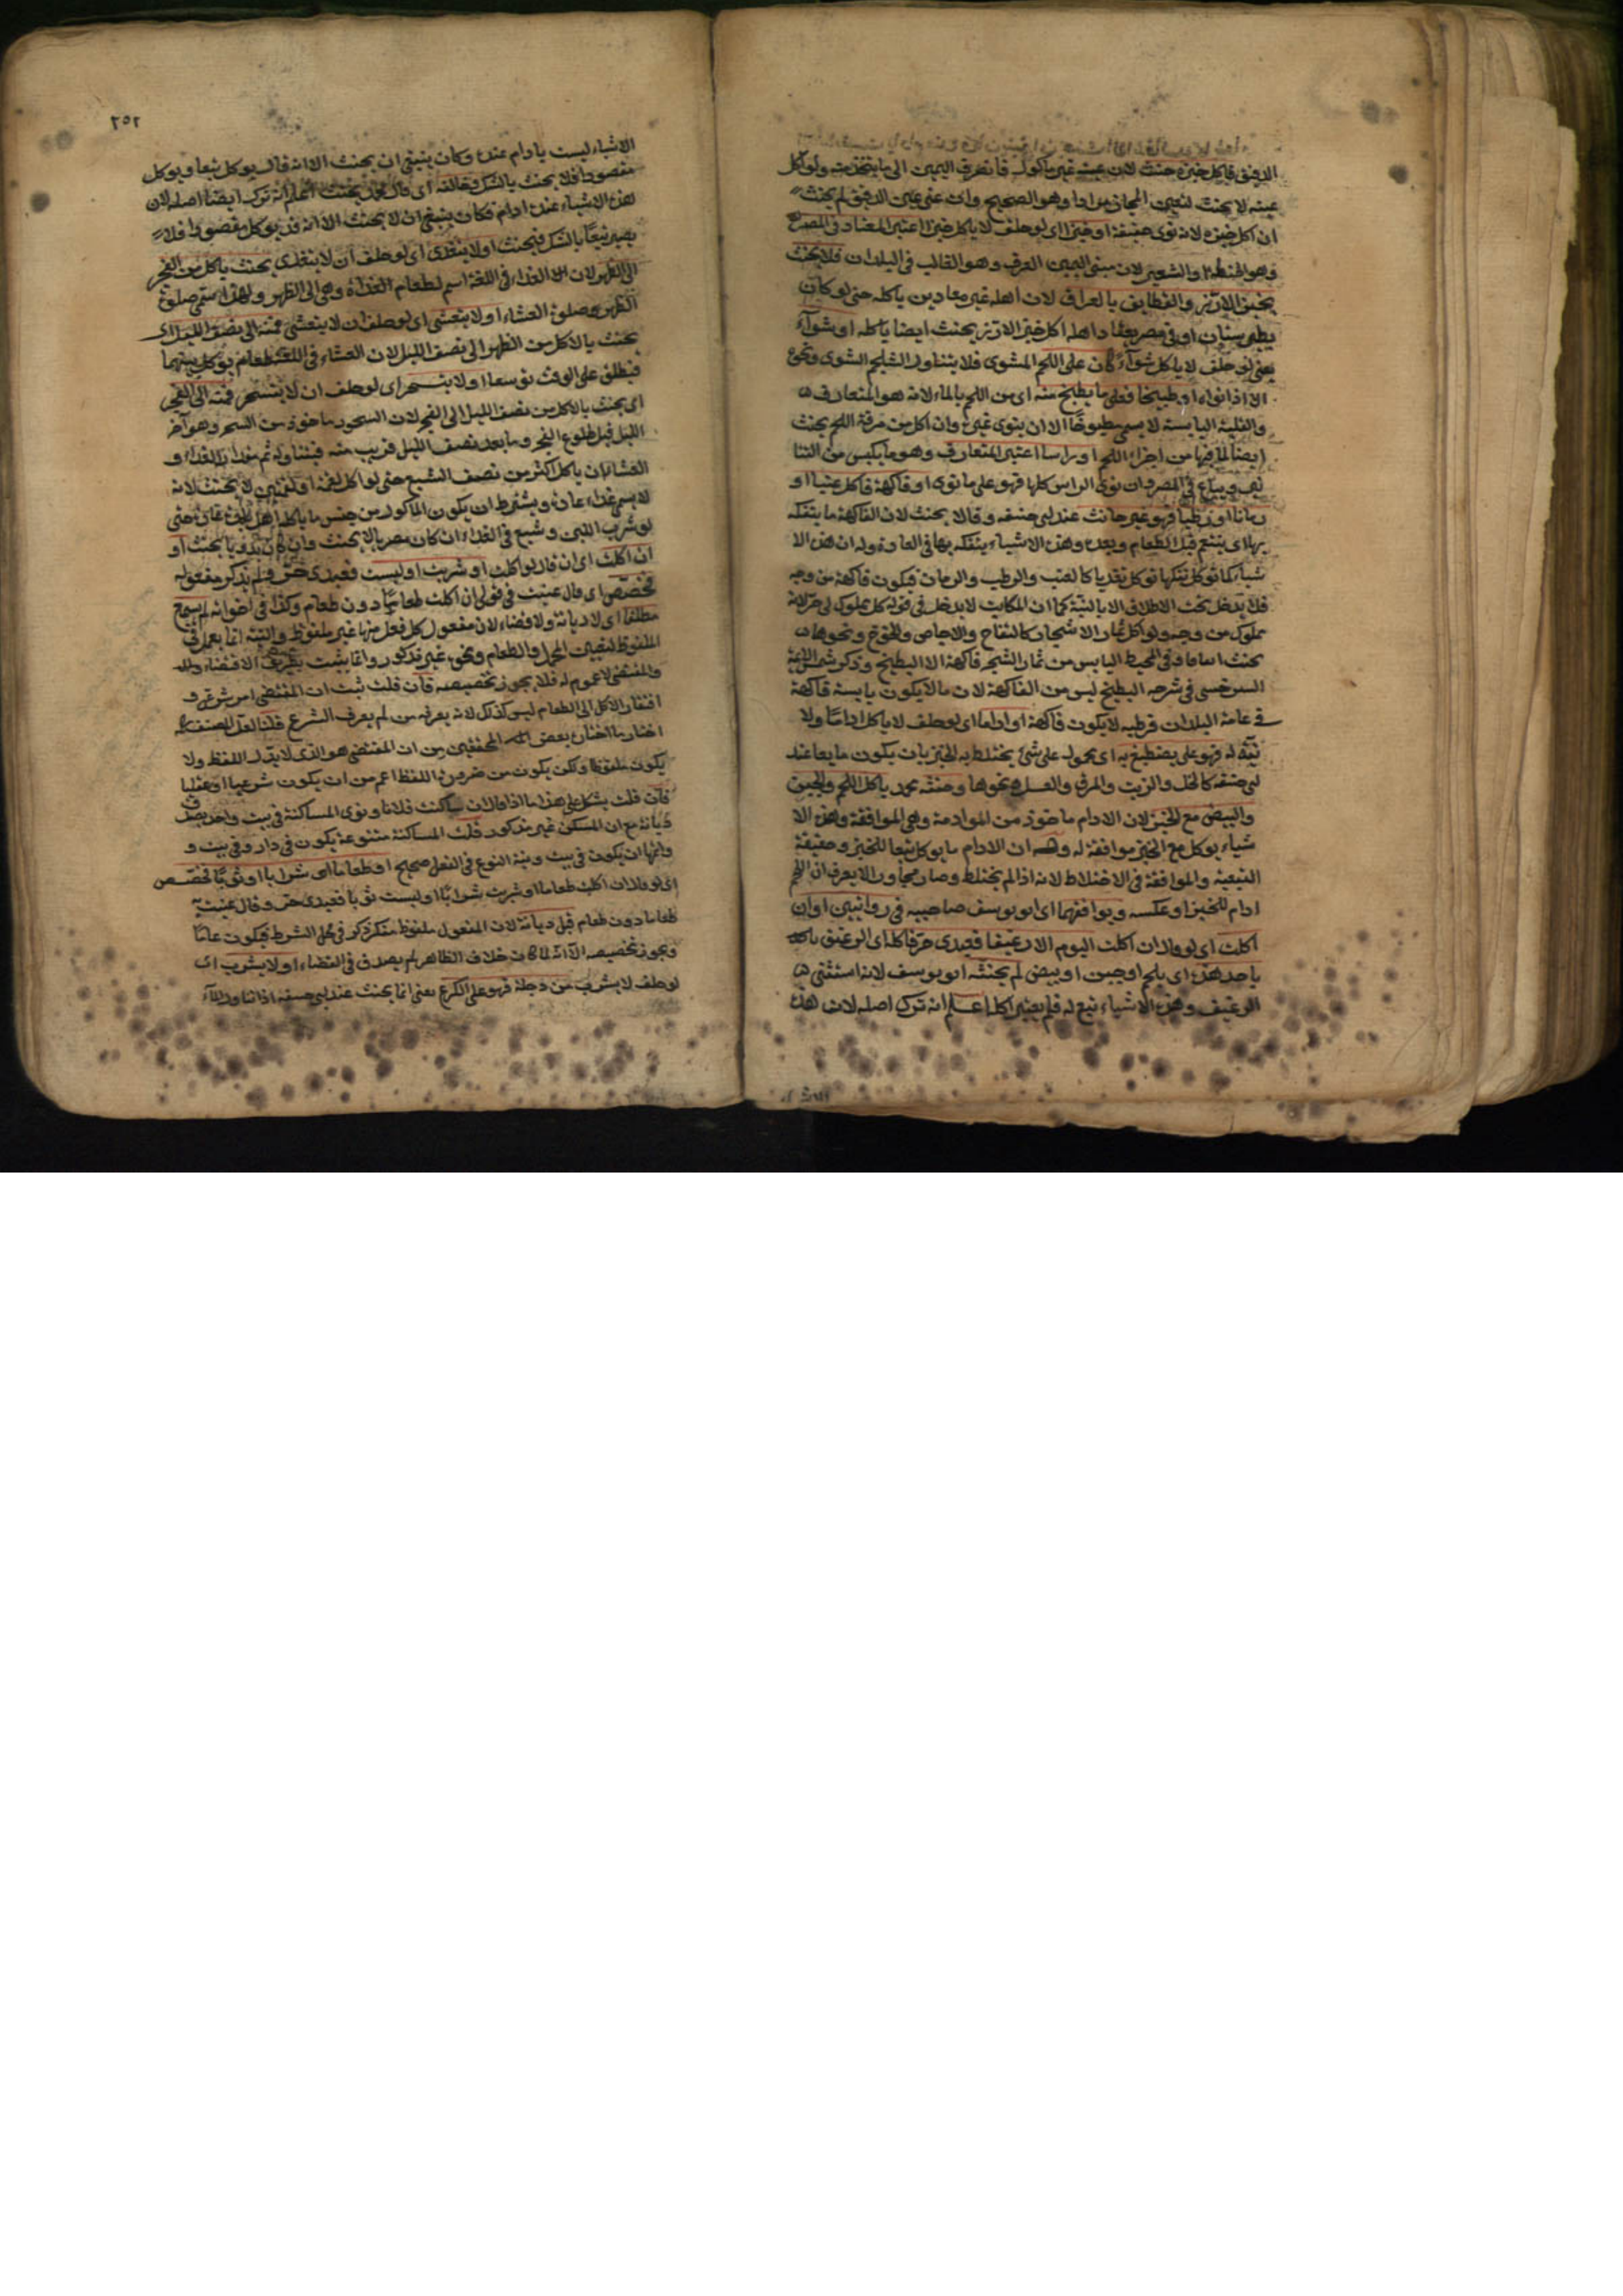 الدقيق فاكل خبزه حنث لان عينه غير ماكول فانصرف اليمين الى ما يتخذ منه ولو اكل
عينه لا يحنث لتعين المجاز مرادا وهو الصحيح وان عنى عين الدقيق لم يحنث
ان اكل خبزه لانه نوى حقيقة او خبزا اى لو حلف لا ياكل خبزا اعتبر المعتاد فى المصر
وهو الحنطة والشعير لان مبنى اليمين العرف وهو الغالب فى البلدان فلا يحنث
بخبز الارز والقطايف بالعراق لان اهله غير معتادين ياكله حتى لو كان
بطبرستان او فى مصر يعتاد اهله اكل خبز الارز يحنث ايضا ياكله او شواء
يعنى لو حلف لا ياكل شواء كان على اللحم المشوى فلا يتناول الشلجم المشوى ونحوه
الا اذا نواه او طبيخا فعلى ما يطبخ منه اى من اللحم بالماء لانه هو المتعارف
والقلية اليابسة لا يسمى مطبوخا الا ان ينوى غيره وان اكل من مرقة اللحم يحنث
ايضا لما فيها من اجزاء اللحم او راسا اعتبر المتعارف وهو ما يكبس من التنا
نير ويباع فى المصر وان نوى الراس كلها فهو على ما نوى او فاكهة فاكل عنبا او
رمانا او رطبا فهو غير حانث عند ابى حنيفه وقالا يحنث لان الفاكهة ما يتفكه
بها اى يتنعم قبل الطعام وبعده وهذه الاشياء يتفكه بها فى العادة وله ان هذه الا
شياء كما توكل تفكها توكل تغديا كالعنب والرطب والرمان فيكون فاكهة من وجه
فلا يدخل تحت الاطلاق الا بالنية كما ان المكاتب لا يدخل فى قوله كل مملوك لى حر لانه
مملوك من وجه ولو اكل ثمار الاشجار كالتفاح والاجاص والخوخ ونحوها
يحنث اتفاقا وفى المحيط اليابس من ثمار الشجر فاكهة الا البطيخ وذكر شمس الائمة
السرخسى فى شرحه البطيخ ليس من الفاكهة لان ما لا يكون يابسه فاكهة
فى عامة البلدان فرطبه لا يكون فاكهة او اداما اى لو حلف لا ياكل اداما ولا
نية له فهو على يصطبغ به اى محمول على شئ يختلط به الخبز بان يكون مايعا عند
ابى حنيفه كالخل والزيت والمرق والعسل ونحوها وحنثه محمد ياكل اللحم والجبن
والبيض مع الخبز لان الادام ماخوذ من الموادمة وهى الموافقة وهذه الا
شياء يوكل مع الخبز موافقة له وله ان الادام ما يوكل تبعا للخبز وحقيقة
التبعية والموافقة فى الاختلاط لانه اذا لم يختلط وصار مجاورا لا يعرف ان اللحم
ادام للخبز او عكسه ويوافقهما اى ابو يوسف صاحبيه فى روايتين او ان
اكلت اى لو قال ان اكلت اليوم الا رغيفا فعبدى حر فاكله اى الرغيف
باحد هذه اى بلحم او جبن او بيض لم يحنثه ابو يوسف لانه استثنى
الرغيف وهذه الاشياء تبع له فلم يعتبر اكلا اعلم انه ترك اصله لان هذه
الاشياء
٢٥٢
الاشياء ليست بادام عنده وكان ينبغى ان يحنث الا انه قال يوكل تبعا ويوكل
مقصودا فلا يحنث بالشك وخالفه اى قال محمد يحنث اعلم انه ترك ايضا اصله لان
هذه الاشياء عنده ادام فكان ينبغى ان لا يحنث الا انه قد يوكل مقصودا فلا
يصير تبعا بالشك فيحنث او لا يتغدى اى لو حلف ان لا يتغدى يحنث ياكل من الفجر
الى الظهر لان الغداء فى اللغة اسم لطعام الغداة وهى الى الظهر ولهذا ستمى صلوة
الظهر صلوة العشاء او لا يتعشى اى لو حلف ان لا يتعشى فمنه الى نصف الليل اى
يحنث بالاكل من الظهر الى نصف الليل لان العشاء فى اللغة طعام يوكل بينهما
فيطلق على الوقت توسعا او لا يتسحر اى لو حلف ان لا يتسحر فمنه الى الفجر
اى يحنث بالاكل من نصف الليل الى الفجر لان السحور ماخوذ من السحر وهو آخر
الليل قبل طلوع الفجر وما بعد نصف الليل قريب منه فيتناوله ثم مقدار الغداء و
العشاء ان ياكل اكثر من نصف الشبع حتى لو اكل لقمة او لقمتين لا يحنث لانه
لا يسمى غداء عادة ويشترط ان يكون الماكول من جنس ما ياكله اهل بلده عادة حتى
لو شرب اللبن وشبع فى الغداء ان كان مصريا لا يحنث وان كان بدويا يحنث او
ان اكلت اى ان قال لو اكلت او شربت او لبست فعبدى حر فلم يذكر مفعوله
فخصص اى قال عنيت فى قولى ان اكلت طعاما دون طعام وكذا فى اخواته لم يسمع
مطلقا اى لا ديانة ولا قضاء لان مفعول كل فعل منها غير ملفوظ والنية انما يعمل فى
الملفوظ لتعيين المحمل والطعام ونحوه غير مذكور وانما يثبت بطريق الاقتضاء
والمقتضى لا عموم له فلا يجوز تخصيصه فان قلت ثبت ان المقتضى امر شرعى و
افتقار الاكل الى الطعام ليس كذلك لانه يعرفه من لم يعرف الشرع قلنا لعل المصنف
اختار ما اختاره بعض المحققين من ان المقتضى هو الذى لا يدل اللفظ ولا
يكون ملفوظا ولكن يكون من ضرورة اللفظ اعم من ان يكون شرعيا او عقليا
فان قلت يشكل على هذا ما اذا قال ان ساكنت فلانا ونوى المساكنة فى بيت واحد يصدق
ديانة مع ان المسكن غير مذكور قلت المساكنة متنوعة يكون فى دار وفى بيت و
واتمها ان يكون فى بيت ونية النوع فى الفعل صحيح او طعاما اى شرابا او ثوبا تخصص
اى لو قال ان اكلت طعاما او شربت شرابا او لبست ثوبا فعبدى حر وقال عنيت
طعاما دون طعام قبل ديانة لان المفعول ملفوظ منكر ذكر فى محل الشرط فيكون عاما
ويجوز تخصيصه الا انه لما كان خلاف الظاهر لم يصدق فى القضاء او لا يشرب اى
لو حلف لا يشرب من دجلة فهو على الكرع يعنى انما يحنث عند ابى حنيفه اذا تناول الماء